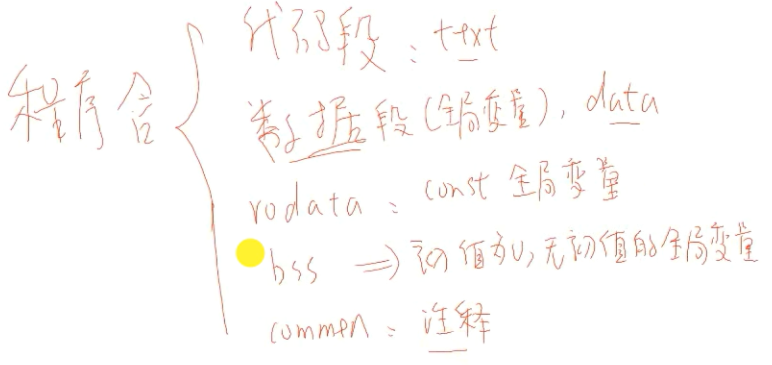 程序含
代码段：text
数据段(全局变量)，data
rodata：const 全局变量
bss ⇒ 初值为0，无初值的全局变量
commen：注释